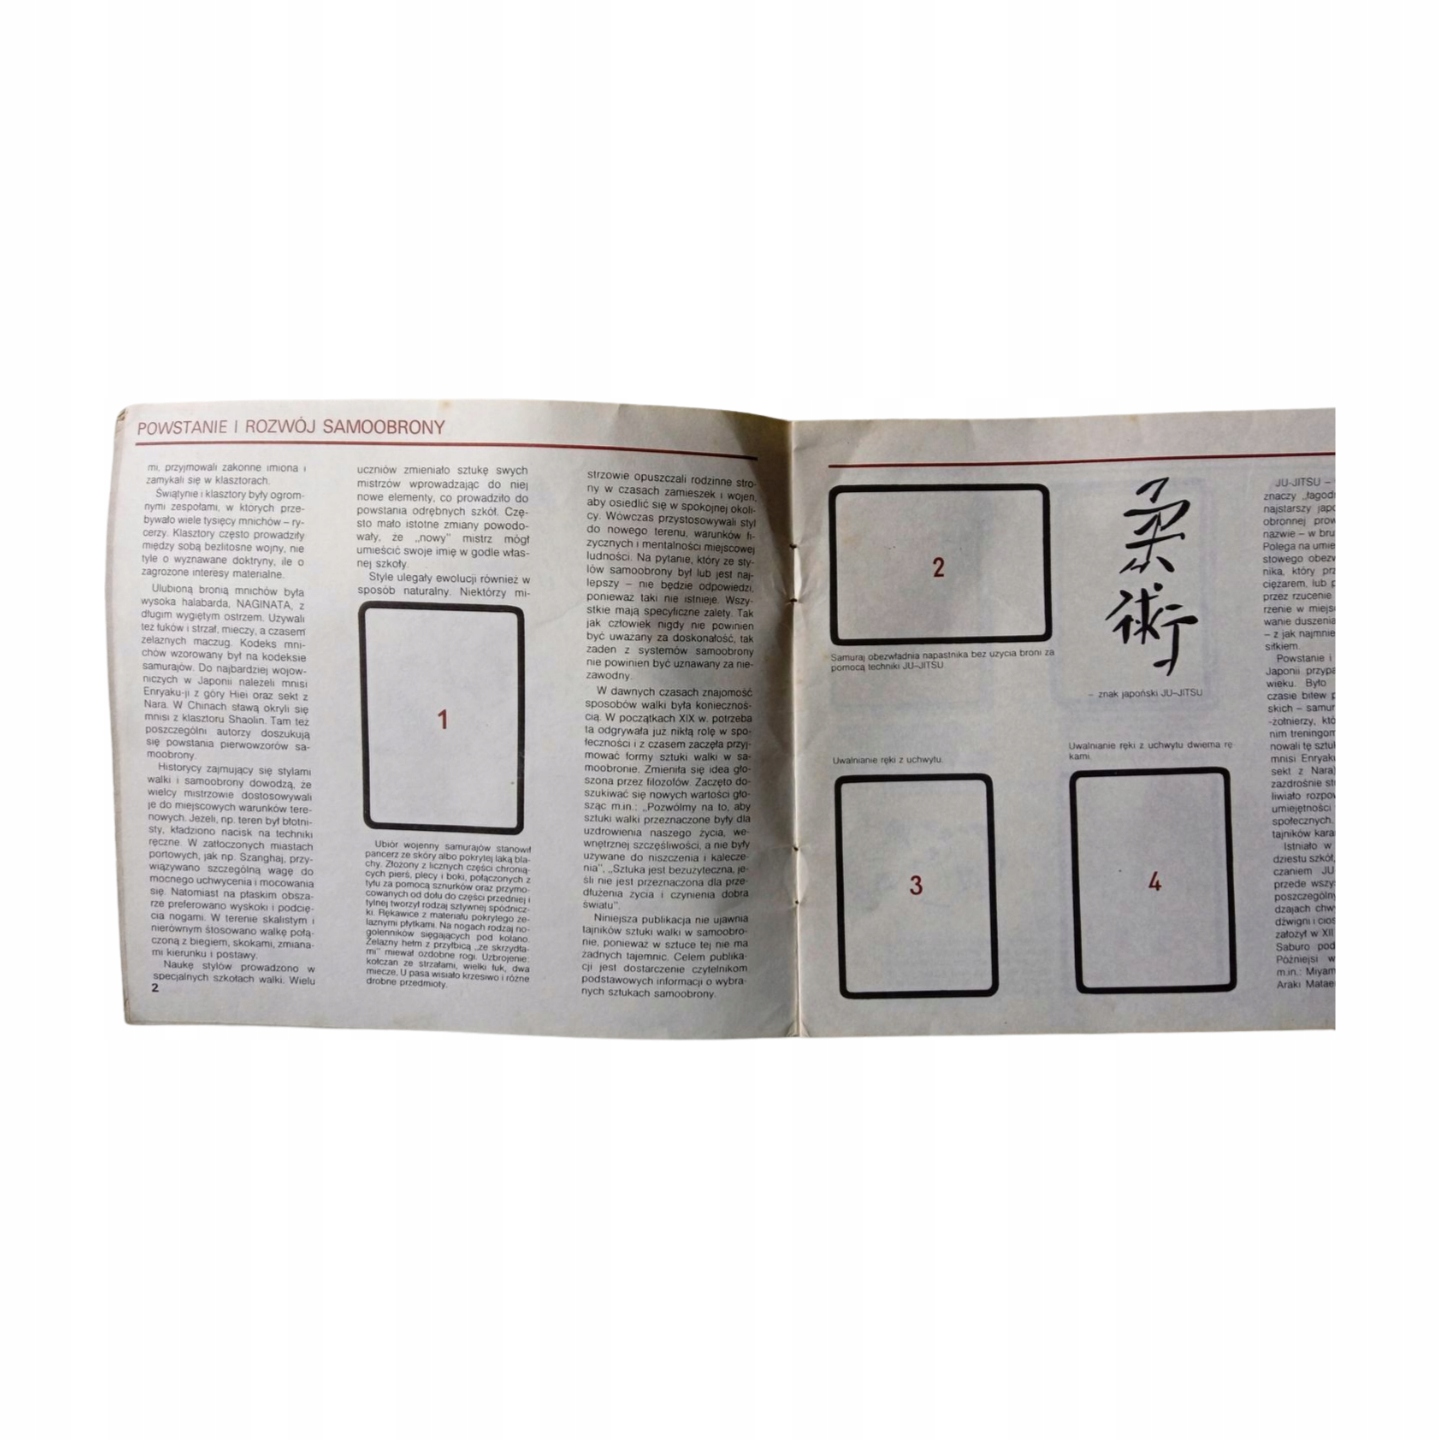 POWSTANIE I ROZWÓJ SAMOOBRONY
mi, przyjmowali zakonne imiona i
zamykali się w klasztorach.
Świątynie i klasztory były ogrom-
nymi zespołami, w których prze-
bywało wiele tysięcy mnichów – ry-
cerzy. Klasztory często prowadziły
między sobą bezlitosne wojny, nie
tyle o wyznawane doktryny, ile o
zagrożone interesy materialne.
Ulubioną bronią mnichów była
wysoka halabarda, NAGINATA, z
długim wygiętym ostrzem. Używali
też łuków i strzał, mieczy, a czasem
żelaznych maczug. Kodeks mni-
chów wzorowany był na kodeksie
samurajów. Do najbardziej wojow-
niczych w Japonii należeli mnisi
Enryaku-ji z góry Hiei oraz sekt z
Nara. W Chinach sławą okryli się
mnisi z klasztoru Shaolin. Tam też
poszczególni autorzy doszukują
się powstania pierwowzorów sa-
moobrony.
Historycy zajmujący się stylami
walki i samoobrony dowodzą, że
wielcy mistrzowie dostosowywali
je do miejscowych warunków tere-
nowych. Jeżeli, np. teren był błotni-
sty, kładziono nacisk na techniki
ręczne. W zatłoczonych miastach
portowych, jak np. Szanghaj, przy-
wiązywano szczególną wagę do
mocnego uchwycenia i mocowania
się. Natomiast na płaskim obsza-
rze preferowano wyskoki i podcię-
cia nogami. W terenie skalistym i
nierównym stosowano walkę połą-
czoną z biegiem, skokami, zmiana-
mi kierunku i postawy.
Naukę stylów prowadzono w
specjalnych szkołach walki. Wielu
2
uczniów zmieniało sztukę swych
mistrzów wprowadzając do niej
nowe elementy, co prowadziło do
powstania odrębnych szkół. Czę-
sto mało istotne zmiany powodo-
wały, że „nowy” mistrz mógł
umieścić swoje imię w godle włas-
nej szkoły.
Style ulegały ewolucji również w
sposób naturalny. Niektórzy mi-
1
Ubiór wojenny samurajów stanowił
pancerz ze skóry albo pokrytej laką bla-
chy. Złożony z licznych części chronią-
cych pierś, plecy i boki, połączonych z
tyłu za pomocą sznurków oraz przymo-
cowanych od dołu do części przedniej i
tylnej tworzył rodzaj sztywnej spódnicz-
ki. Rękawice z materiału pokrytego że-
laznymi płytkami. Na nogach rodzaj na-
golenników sięgających pod kolano.
Żelazny hełm z przyłbicą „ze skrzydła-
mi” miewał ozdobne rogi. Uzbrojenie:
kołczan ze strzałami, wielki łuk, dwa
miecze. U pasa wisiało krzesiwo i różne
drobne przedmioty.
strzowie opuszczali rodzinne stro-
ny w czasach zamieszek i wojen,
aby osiedlić się w spokojnej okoli-
cy. Wówczas przystosowywali styl
do nowego terenu, warunków fi-
zycznych i mentalności miejscowej
ludności. Na pytanie, który ze sty-
lów samoobrony był lub jest naj-
lepszy – nie będzie odpowiedzi,
ponieważ taki nie istnieje. Wszy-
stkie mają specyficzne zalety. Tak
jak człowiek nigdy nie powinien
być uważany za doskonałość, tak
żaden z systemów samoobrony
nie powinien być uznawany za nie-
zawodny.
W dawnych czasach znajomość
sposobów walki była koniecznoś-
cią. W początkach XIX w. potrzeba
ta odgrywała już nikłą rolę w spo-
łeczności i z czasem zaczęła przyj-
mować formy sztuki walki w sa-
moobronie. Zmieniła się idea gło-
szona przez filozofów. Zaczęto do-
szukiwać się nowych wartości gło-
sząc m.in.: „Pozwólmy na to, aby
sztuki walki przeznaczone były dla
uzdrowienia naszego życia, we-
wnętrznej szczęśliwości, a nie były
używane do niszczenia i kalecze-
nia”. „Sztuka jest bezużyteczna, je-
śli nie jest przeznaczona dla prze-
dłużenia życia i czynienia dobra
światu”.
Niniejsza publikacja nie ujawnia
tajników sztuki walki w samoobro-
nie, ponieważ w sztuce tej nie ma
żadnych tajemnic. Celem publika-
cji jest dostarczenie czytelnikom
podstawowych informacji o wybra-
nych sztukach samoobrony.
2
Samuraj obezwładnia napastnika bez użycia broni za
pomocą techniki JU–JITSU
柔
術
– znak japoński JU–JITSU
Uwalnianie ręki z uchwytu.
3
Uwalnianie ręki z uchwytu dwiema rę
kami.
4
JU-JITSU –
znaczy „łagod
najstarszy jap
obronnej prow
nazwie – w bru
Polega na umie
stowego obezw
nika, który prz
ciężarem, lub p
przez rzucenie
rzenie w miejs
wanie duszenia
– z jak najmnie
siłkiem.
Powstanie i
Japonii przypa
wieku. Było
czasie bitew p
skich – samur
-żołnierzy, któ
nim treningom
nowali tę sztuk
mnisi Enryaku
sekt z Nara)
zazdrośnie st
liwiało rozpow
umiejętności
społecznych.
tajników kara
Istniało w
dziestu szkół,
czaniem JU
przede wszys
poszczególny
dzajach chw
dźwigni i cios
założył w XII
Saburo pod
Później w
m.in.: Miyam
Araki Matae